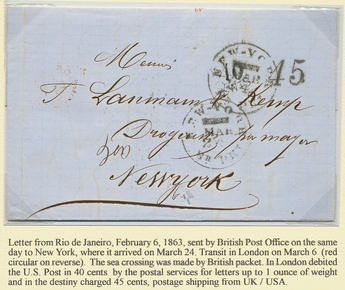 NEW-YORK
10
MAR
45
NEW YORK
MAR
Lanman & Kemp
Newyork
Letter from Rio de Janeiro, February 6, 1863, sent by British Post Office on the same
day to New York, where it arrived on March 24. Transit in London on March 6 (red
circular on reverse). The sea crossing was made by British packet. In London debited
the U.S. Post in 40 cents by the postal services for letters up to 1 ounce of weight
and in the destiny charged 45 cents, postage shipping from UK / USA.